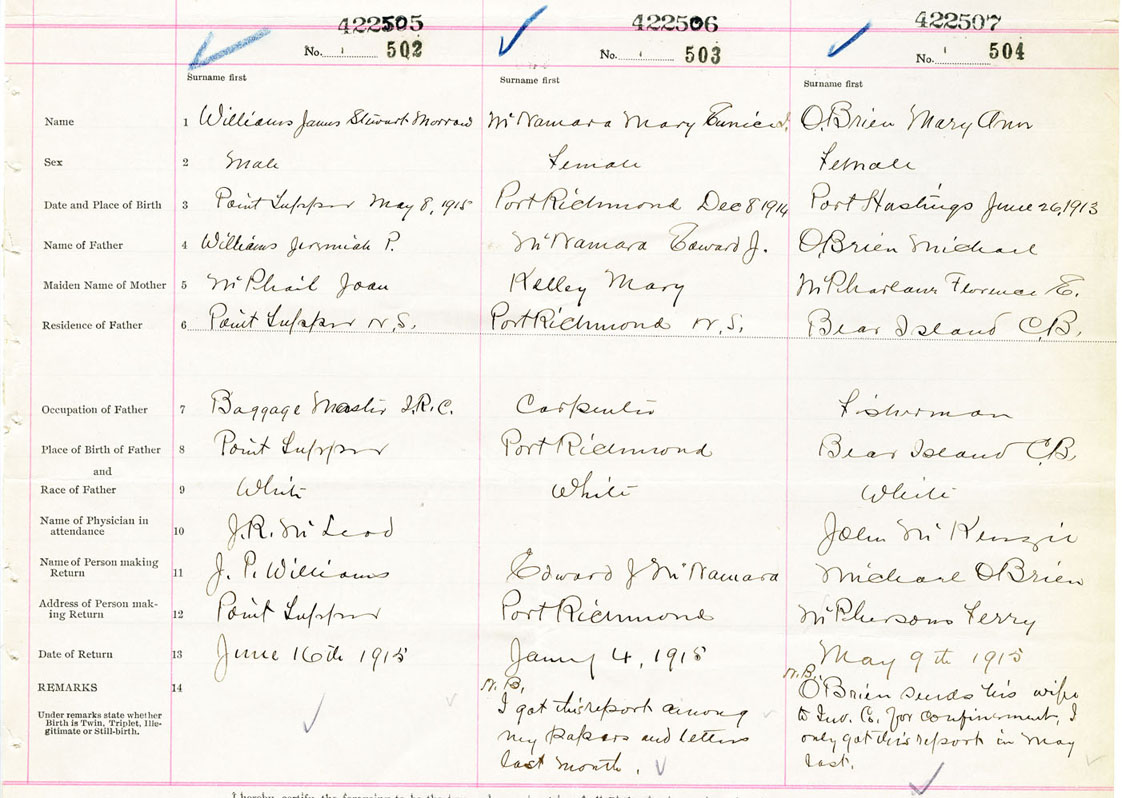 422505 422506 422507
No. 502 No. 503 No. 504
Surname first Surname first Surname first
Name 1 Williams James Stewart Morrow McNamara Mary Eunice O'Brien Mary Ann
Sex 2 Male Female Female
Date and Place of Birth 3 Point Tupper May 8, 1915 Port Richmond Dec 8 1914 Port Hastings June 26, 1913
Name of Father 4 Williams Jeremiah P. McNamara Edward J. O'Brien Michael
Maiden Name of Mother 5 McPhail Joan Kelley Mary Florence E.
Residence of Father 6 Point Tupper N.S. Port Richmond N.S. Bear Island C.B.
Occupation of Father 7 Baggage Master I.R.C. Carpenter Fisherman
Place of Birth of Father 8 Point Tupper Port Richmond Bear Island C.B.
and
Race of Father 9 White White White
Name of Physician in
attendance 10 J.R. McLeod John McKenzie
Name of Person making
Return 11 J. P. Williams Edward J McNamara Michael O'Brien
Address of Person mak-
ing Return 12 Point Tupper Port Richmond McPhersons Ferry
Date of Return 13 June 16th 1915 Jany 4, 1915 May 9th 1915
REMARKS 14 N.B. N.B.
Under remarks state whether
Birth is Twin, Triplet, Ille-
gitimate or Still-birth.
I got this report among
my papers and letters
last month.
O'Brien sends his wife
to Inv. Co. for confinement, I
only got this report in May
last.